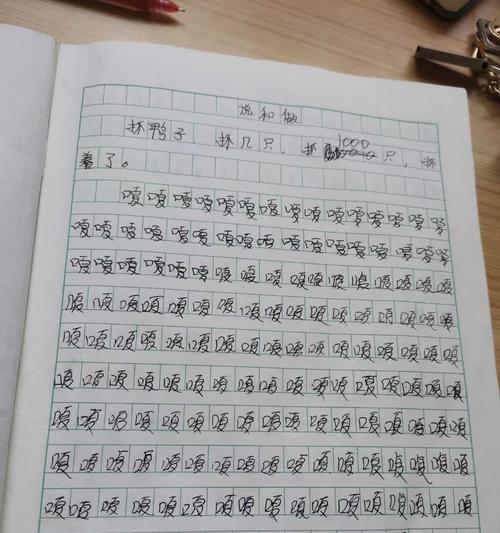 说和做
抓鸭子 抓几只,抓1000只,抓
着了。
嘎嘎嘎嘎嘎嘎嘎嘎嘎嘎嘎嘎嘎嘎嘎
嘎嘎嘎嘎嘎嘎嘎嘎嘎嘎嘎嘎嘎嘎嘎嘎嘎
嘎嘎嘎嘎嘎嘎嘎嘎嘎嘎嘎嘎嘎嘎嘎嘎嘎
嘎嘎嘎嘎嘎嘎嘎嘎嘎嘎嘎嘎嘎嘎嘎嘎嘎
嘎嘎嘎嘎嘎嘎嘎嘎嘎嘎嘎嘎嘎嘎嘎嘎嘎
嘎嘎嘎嘎嘎嘎嘎嘎嘎嘎嘎嘎嘎嘎嘎嘎嘎
嘎嘎嘎嘎嘎嘎嘎嘎嘎嘎嘎嘎嘎嘎嘎嘎嘎
嘎嘎嘎嘎嘎嘎嘎嘎嘎嘎嘎嘎嘎嘎嘎嘎嘎
嘎嘎嘎嘎嘎嘎嘎嘎嘎嘎嘎嘎嘎嘎嘎嘎嘎